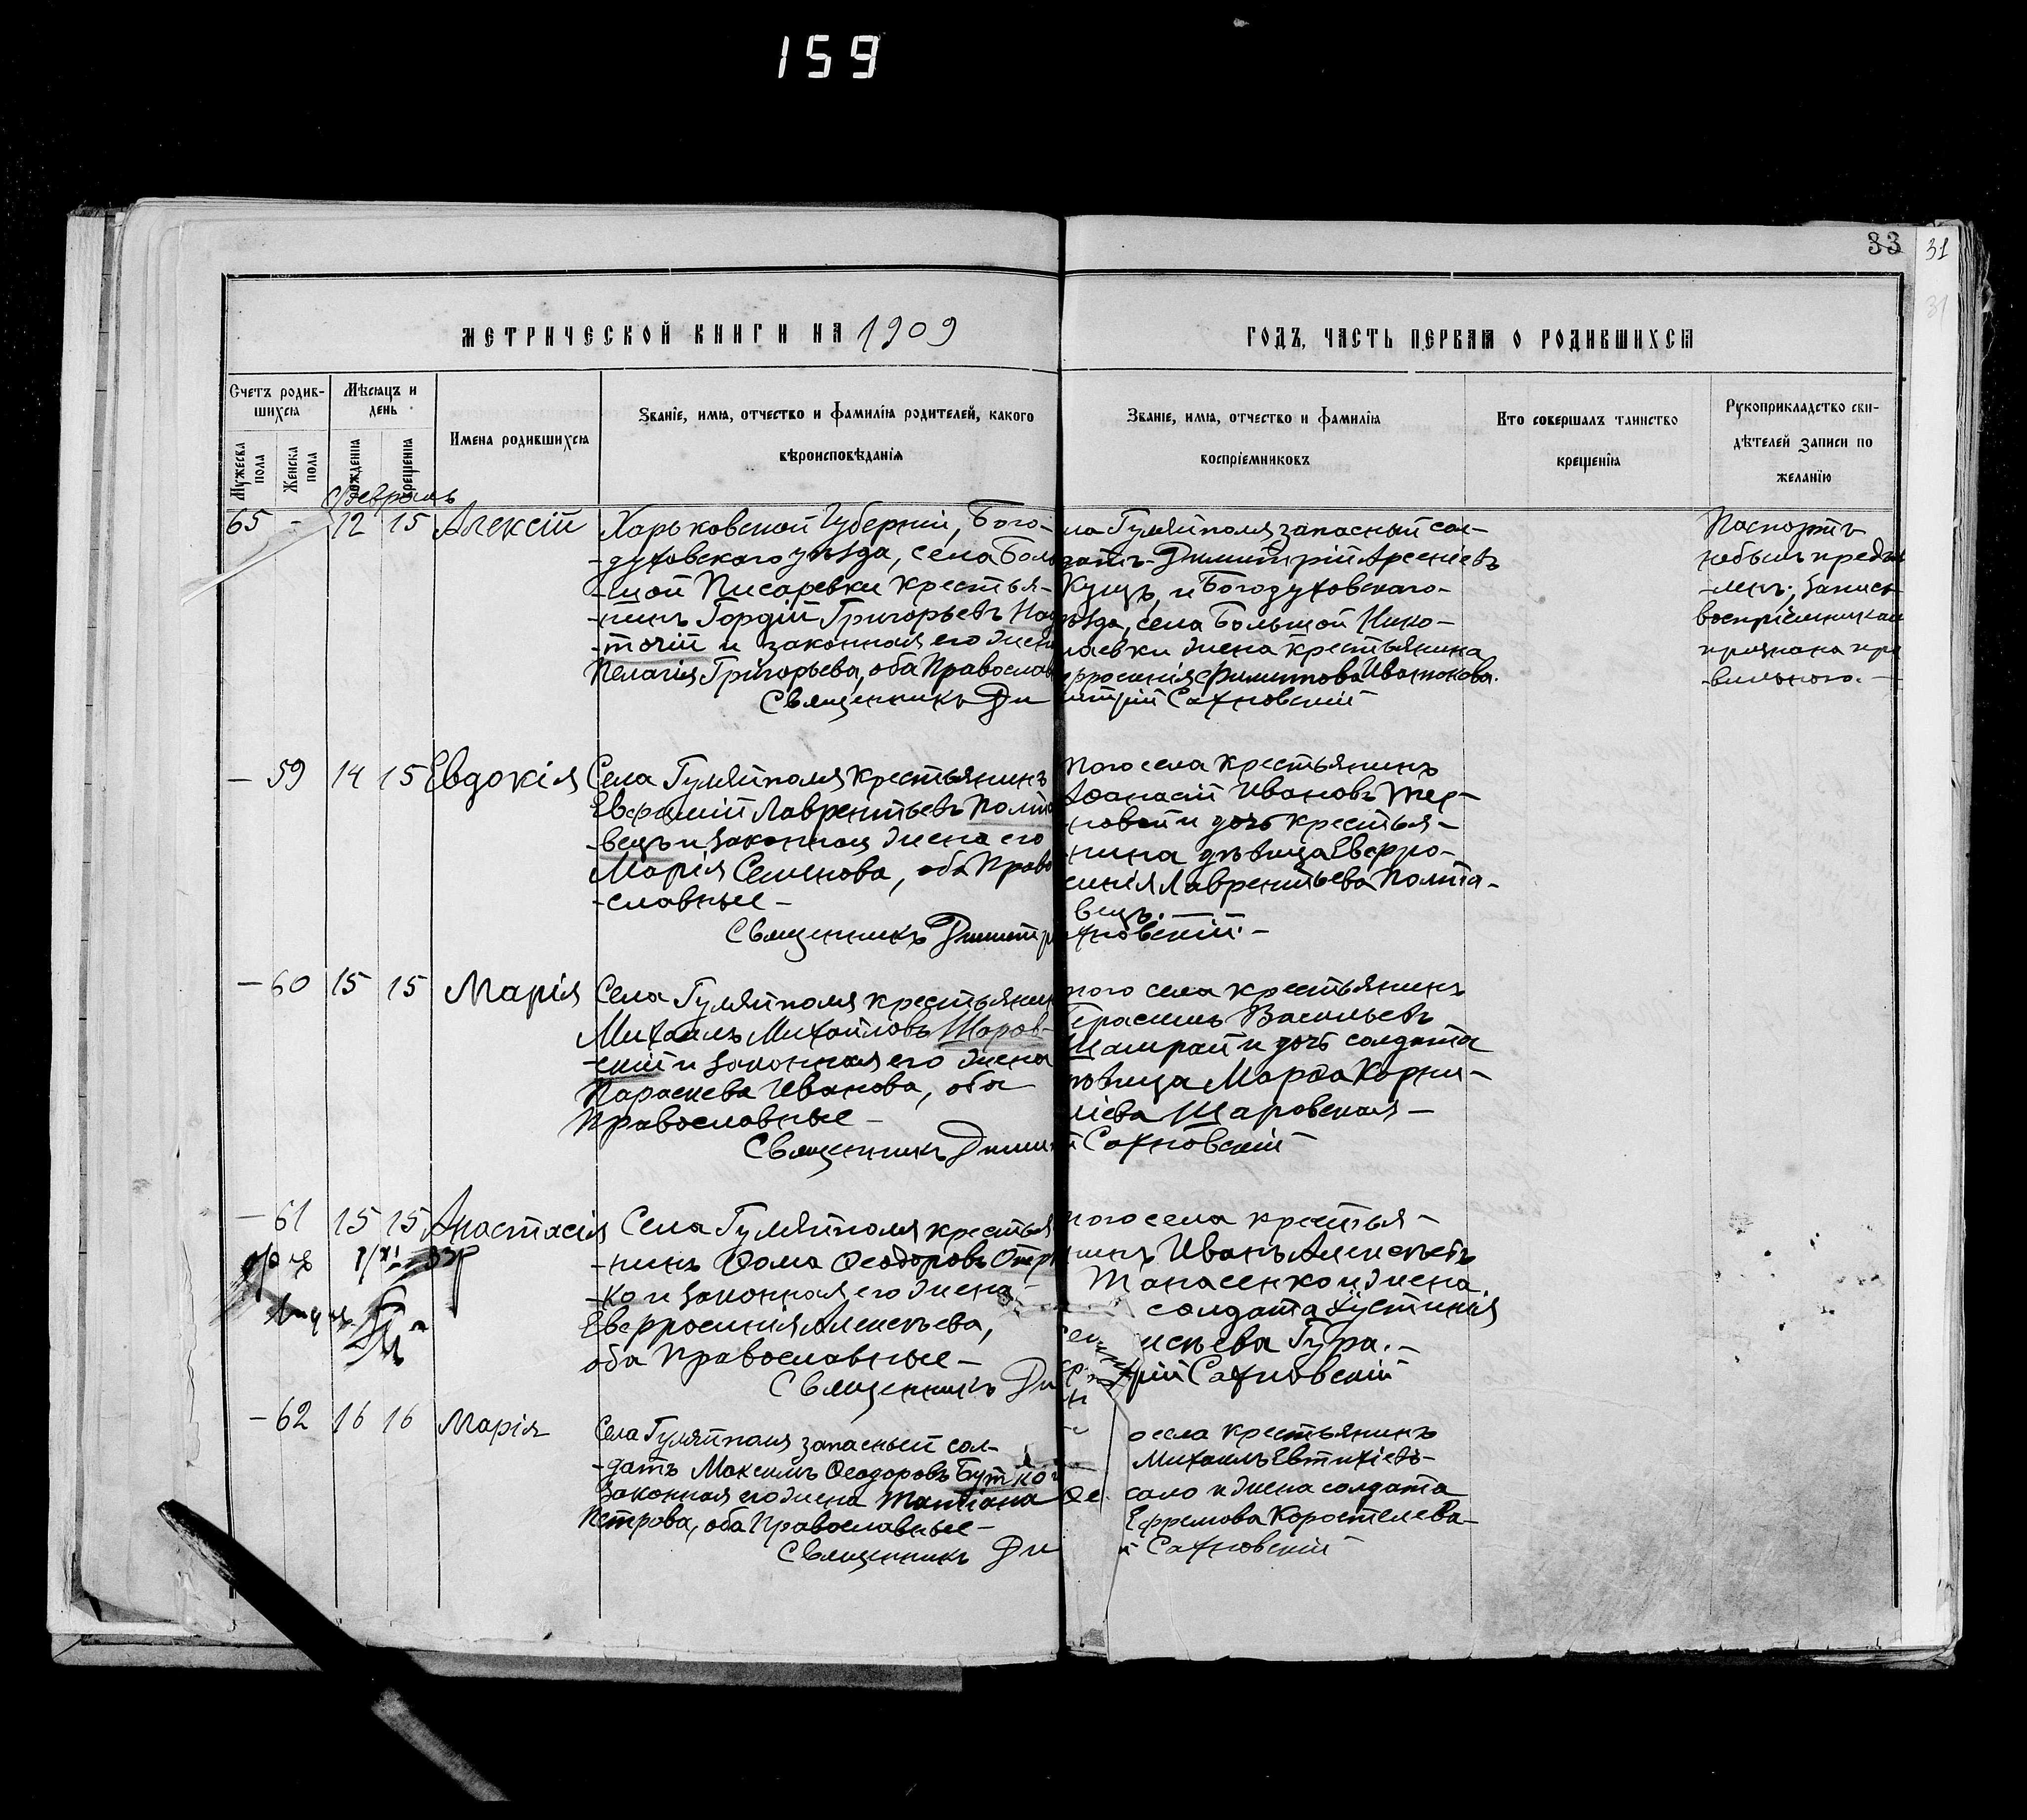 159
33
31
31
МЕТРИЧЕСКОЙ КНИГИ НА 1909
ГОДЪ, ЧАСТЬ ПЕРВАЯ О РОДИВШИХСЯ
Счетъ родив-
шихся
Мѣсяцъ и
день
Мужеска
пола
Женска
пола
рожденія
крещенія
Имена родившихся
Званіе, имя, отчество и фамилія родителей, какого
вѣроисповѣданія
Званіе, имя, отчество и фамилія
воспріемниковъ
Кто совершалъ таинство
крещенія
Рукоприкладство сви-
дѣтелей записи по
желанію
Февраль
65 - 12 15 Алексій
Харьковской Губерніи, Бого-
-духовскаго уѣзда, села Боль
-шой Писаревки крестья-
-нинъ Гордій Григорьевъ
-точій и законная его жена
Пелагія Григорьева, оба Православ
Священникъ Ди
ла Гуляйполя запасный сол-
датъ Димитрій Арсеніевъ
Куцъ, и Богодуховскаго-
ѣзда, села Большой Нико-
лаевки жена крестьянина
фросинія Филиппова Иванькова.
итрій Сахновскій
Паспортъ
небылъ предъя
-ленъ; запись
воспріемниками
признана пра
-вильною. —
— 59 14 15 Евдокія
Села Гуляйполя крестьянинъ
Евфимій Лаврентьевъ Полта
-вецъ и законная жена его
Марія Семенова, оба Право
-славные —
Священникъ Димитр
того села крестьянинъ
Аѳанасій Ивановъ Тер-
новой и дочь крестья-
нина дѣвица Евфро-
синія Лаврентьева Полта-
вецъ. —
ахновскій. —
— 60 15 15 Марія
Села Гуляйполя крестьянин
Михаилъ Михайловъ Шаров-
-скій и законная его жена
Параскева Иванова, оба
Православные —
Священникъ Димит
того села крестьянинъ
Герасимъ Васильевъ
Шамрай и дочь солдата
ѣвица Марѳа Корни-
ліева Шаровская —
й Сахновскій
— 61 15 15 Анастасія
Села Гуляйполя крестья
-нинъ Ѳома Ѳеодоровъ
-ко и законная его жена
Евфросинія Алексѣева,
оба Православные —
Священникъ Ди
того села крестья-
нинъ Иванъ Алексѣевъ
Танасенко и жена
солдата Іустинія
ксѣева Гура. —
рій Сахновскій
— 62 16 16 Марія
Села Гуляйполя запасный сол-
-датъ Максимъ Ѳеодоровъ Бутко и
законная его жена Татіана
Петрова, оба Православные —
Священникъ Ди
о села крестьянинъ
Михаилъ Евтихіевъ-
сало и жена солдата
Ефремова Коростелева —
й Сахновскій